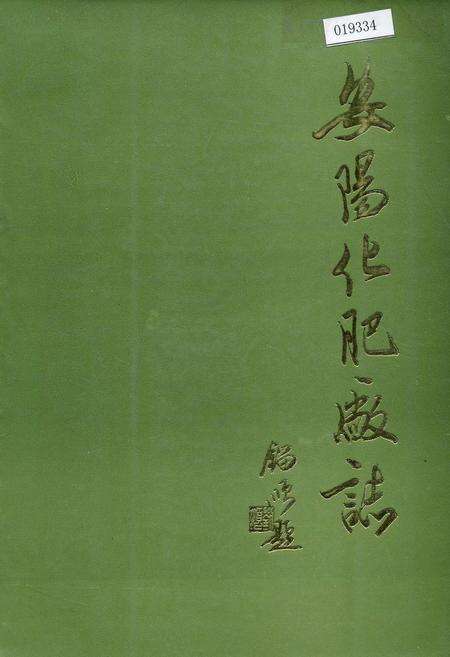 019334
安陽化肥廠誌
順題